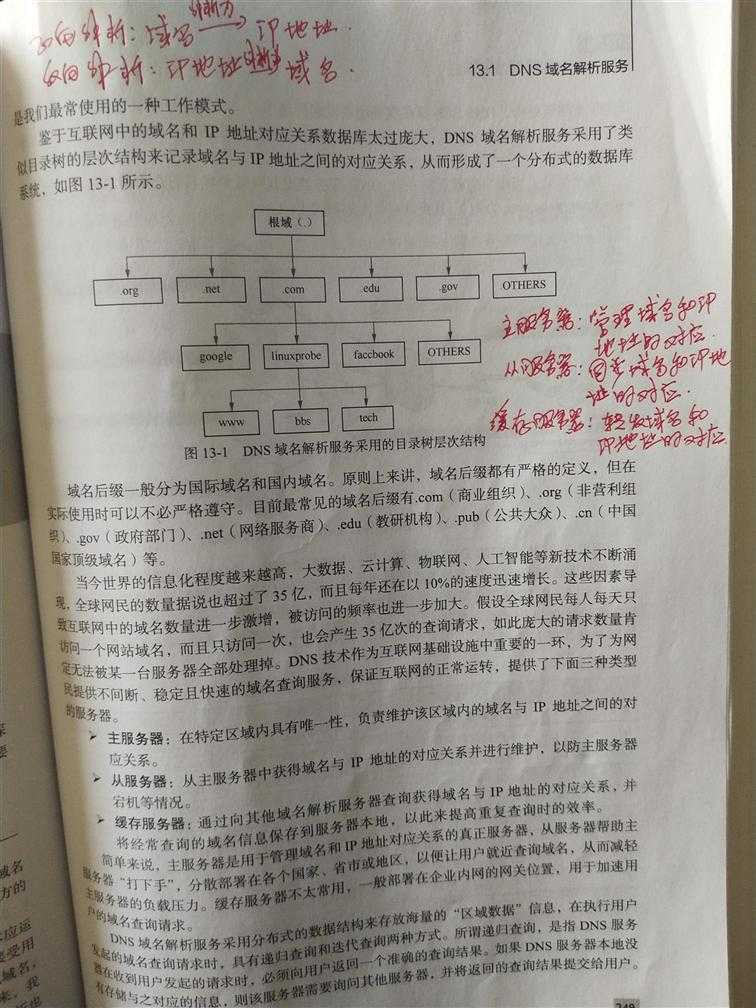 正向解析：域名 解析为 IP地址.
反向解析：IP地址 解析为 域名.
13.1 DNS 域名解析服务
是我们最常使用的一种工作模式。
鉴于互联网中的域名和 IP 地址对应关系数据库太过庞大，DNS 域名解析服务采用了类
似目录树的层次结构来记录域名与 IP 地址之间的对应关系，从而形成了一个分布式的数据库
系统，如图 13-1 所示。
根域（.）
.org .net .com .edu .gov OTHERS
google linuxprobe faccbook OTHERS
www bbs tech
主服务器：管理域名和IP
地址的对应.
从服务器：同步域名和IP地
址的对应.
缓存服务器：转发域名和
IP地址的对应
图 13-1 DNS 域名解析服务采用的目录树层次结构
域名后缀一般分为国际域名和国内域名。原则上来讲，域名后缀都有严格的定义，但在
实际使用时可以不必严格遵守。目前最常见的域名后缀有.com（商业组织）、.org（非营利组
织）、.gov（政府部门）、.net（网络服务商）、.edu（教研机构）、.pub（公共大众）、.cn（中国
国家顶级域名）等。
当今世界的信息化程度越来越高，大数据、云计算、物联网、人工智能等新技术不断涌
现，全球网民的数量据说也超过了 35 亿，而且每年还在以 10%的速度迅速增长。这些因素导
致互联网中的域名数量进一步激增，被访问的频率也进一步加大。假设全球网民每人每天只
访问一个网站域名，而且只访问一次，也会产生 35 亿次的查询请求，如此庞大的请求数量肯
定无法被某一台服务器全部处理掉。DNS 技术作为互联网基础设施中重要的一环，为了为网
民提供不间断、稳定且快速的域名查询服务，保证互联网的正常运转，提供了下面三种类型
的服务器。
➢ 主服务器：在特定区域内具有唯一性，负责维护该区域内的域名与 IP 地址之间的对
应关系。
➢ 从服务器：从主服务器中获得域名与 IP 地址的对应关系并进行维护，以防主服务器
宕机等情况。
➢ 缓存服务器：通过向其他域名解析服务器查询获得域名与 IP 地址的对应关系，并
将经常查询的域名信息保存到服务器本地，以此来提高重复查询时的效率。
简单来说，主服务器是用于管理域名和 IP 地址对应关系的真正服务器，从服务器帮助主
服务器“打下手”，分散部署在各个国家、省市或地区，以便让用户就近查询域名，从而减轻
主服务器的负载压力。缓存服务器不太常用，一般部署在企业内网的网关位置，用于加速用
户的域名查询请求。
DNS 域名解析服务采用分布式的数据结构来存放海量的“区域数据”信息，在执行用户
发起的域名查询请求时，具有递归查询和迭代查询两种方式。所谓递归查询，是指 DNS 服务
器在收到用户发起的请求时，必须向用户返回一个准确的查询结果。如果 DNS 服务器本地没
有存储与之对应的信息，则该服务器需要询问其他服务器，并将返回的查询结果提交给用户。
249